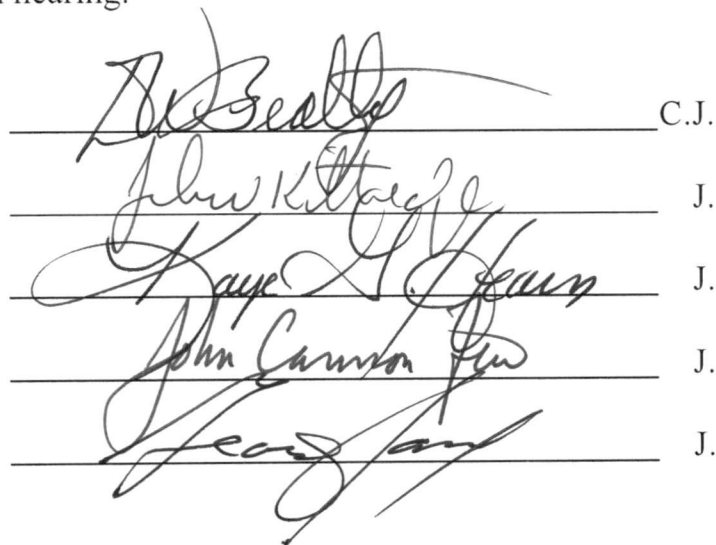 hearing.
Beatty C.J.
John Kittredge J.
Kaye G. Hearn J.
John Cannon Few J.
George J.